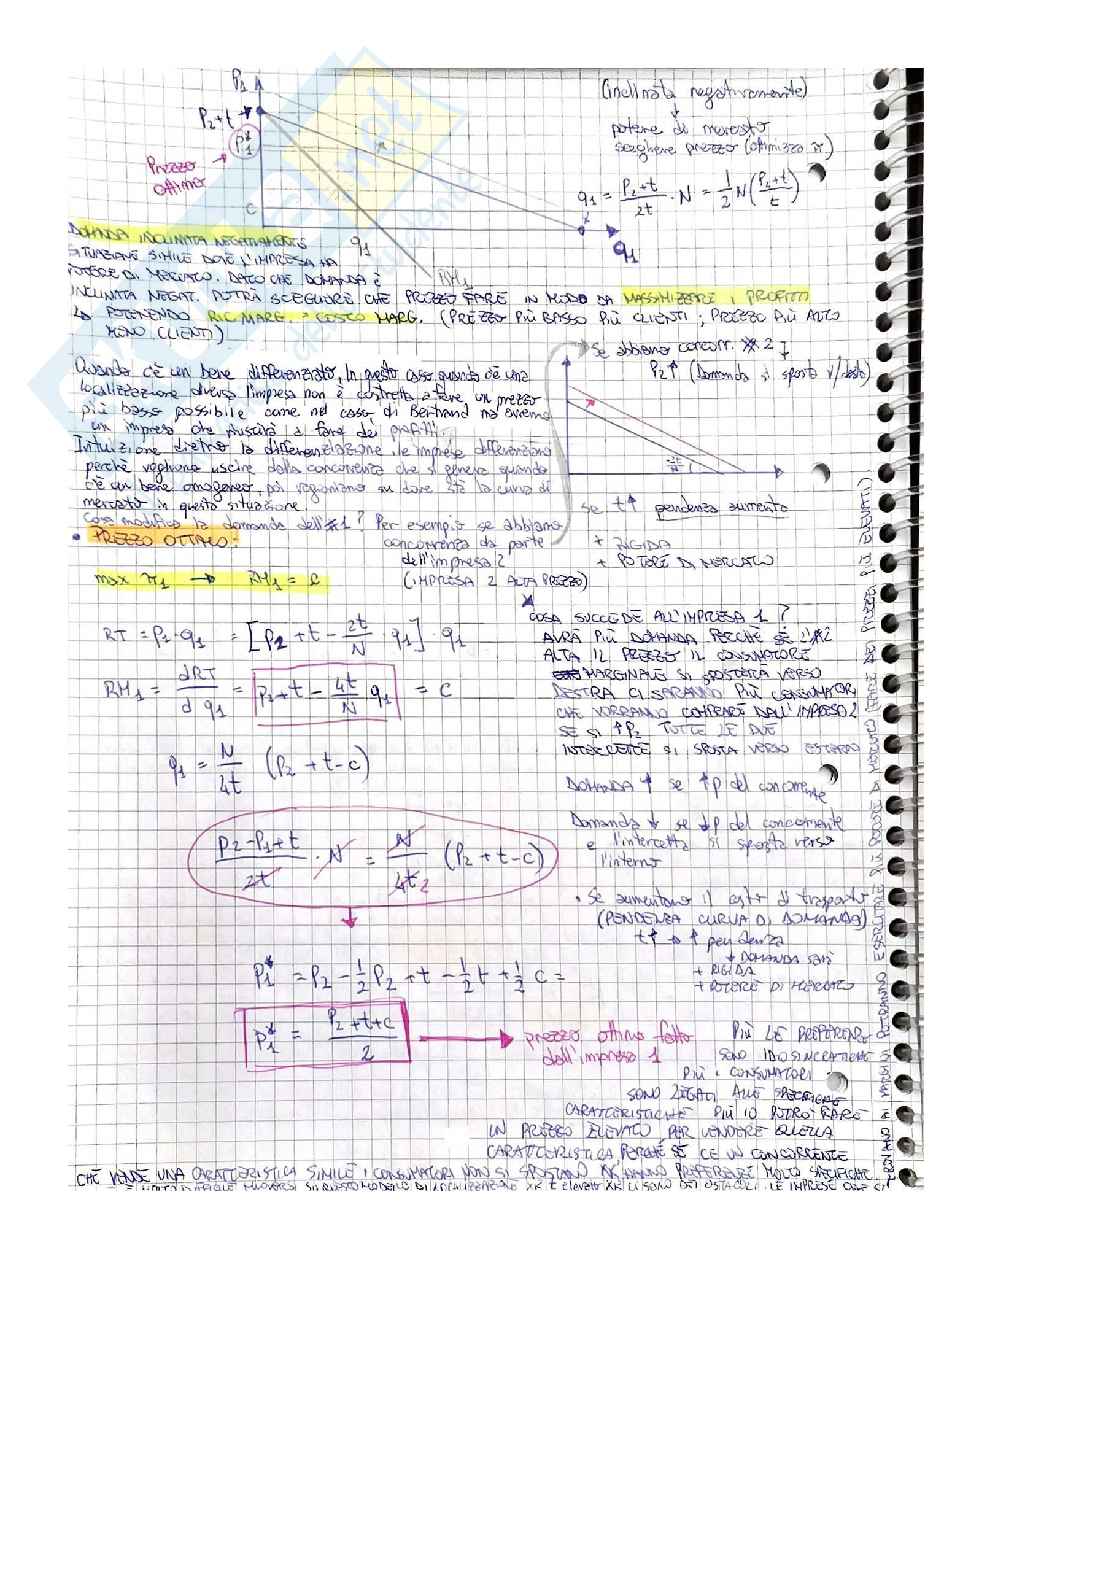 P1
P2+t
P1*
Prezzo
ottimo
C
π
q1
RM1
q1
(inclinata negativamente)
potere di mercato
scegliere prezzo (ottimizzo π)
q1 = P2+t / 2t · N = 1/2 N (P2+t / t)
DOMANDA INCLINATA NEGATIVAMENTE
SITUAZIONE SIMILE DOVE L'IMPRESA HA
POTERE DI MERCATO. DATO CHE DOMANDA È
INCLINATA NEGAT. POTRÀ SCEGLIERE CHE PREZZO FARE IN MODO DA MASSIMIZZARE I PROFITTI
↳ PONENDO RIC. MARG. = COSTO MARG. (PREZZO PIÙ BASSO PIÙ CLIENTI; PREZZO PIÙ ALTO
MENO CLIENTI)
Se abbiamo concorr. #2
P2↑ (Domanda si sposta v/desto)
2t/N
se t↑ pendenza aumenta
+ RIGIDA
+ POTERE DI MERCATO
Quando c'è un bene differenziato, in questo caso quando c'è una
localizzazione diversa l'impresa non è costretta a fare un prezzo
più basso possibile come nel caso di Bertrand ma avremo
un impresa che riuscirà a fare dei profitti.
Intuizione dietro la differenziazione, le imprese differenziano
perchè vogliono uscire dalla concorrenza che si genera quando
c'è un bene omogeneo, poi ragioniamo su dove stà la curva di
mercato in questa situazione.
Cosa modifica la domanda dell'#1? Per esempio se abbiamo
concorrenza da parte
dell'impresa 2
(IMPRESA 2 ALTA PREZZO)
• PREZZO OTTIMO:
max π1 → RM1 = C
RT = P1·q1 = [P2 + t - 2t/N · q1] · q1
RM1 = dRT / d q1 = P2 + t - 4t/N q1 = C
q1 = N/4t (P2 + t - C)
P2-P1+t / 2t · N = N / 4t 2 (P2 + t - C)
P1* = P2 - 1/2 P2 + t - 1/2 t + 1/2 C =
P1* = P2+t+C / 2
prezzo ottimo fatto
dall'impresa 1
COSA SUCCEDE ALL'IMPRESA 1?
AVRÀ PIÙ DOMANDA PERCHÈ SE L'#2
ALTA IL PREZZO IL CONSUMATORE
MARGINALE SI SPOSTERÀ VERSO
DESTRA CI SARANNO PIÙ CONSUMATORI
CHE VORRANNO COMPRARE DALL'IMPRESA 1
SE SI ↑P2 TUTTE LE DUE
INTERCETTE SI SPOSTA VERSO ESTERNO
DOMANDA ↑ se ↑p del concorrente
Domanda ↓ se ↓p del concorrente
e l'intercetta si sposta verso
l'interno
• Se aumentano il costo di trasporto
(PENDENZA CURVA DI DOMANDA)
t↑ → ↑ pendenza
↓ DOMANDA SARÀ
+ RIGIDA
+ POTERE DI MERCATO
PIÙ LE PREFERENZE
SONO IDIOSINCRATICHE
PIÙ I CONSUMATORI
SONO LEGATI ALLE SPECIFICHE
CARATTERISTICHE PIÙ IO POTRÒ FARE
UN PREZZO ELEVATO PER VENDERE QUELLA
CARATTERISTICA PERCHÈ SE C'È UN CONCORRENTE
CHE VENDE UNA CARATTERISTICA SIMILE I CONSUMATORI NON SI SPOSTANO XK HANNO PREFERENZE MOLTO SPECIFICHE.